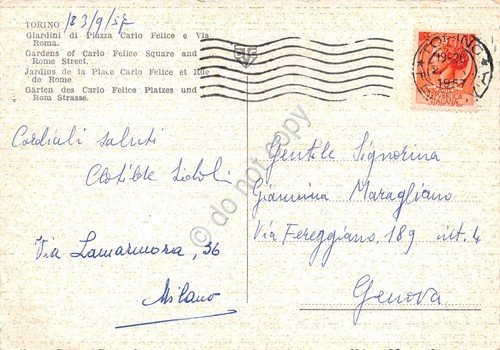 TORINO 13/9/57
Giardini di Piazza Carlo Felice e Via
Roma.
Gardens of Carlo Felice Square and
Rome Street.
Jardins de la Place Carlo Felice et Rue
de Rome
Gärten des Carlo Felice Platzes und
Rom Strasse.
TORINO
1957
ITALIANA
Cordiali saluti
Clotilde
Via Lamarmora, 36
Milano
Gentile Signorina
Giannina Maragliano
Via Fereggiano, 189 int. 4
Genova
do not copy